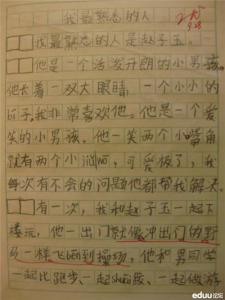 我最熟悉的人
我最熟悉的人是赵子玉。
他是一个活泼开朗的小男孩。
他长着一双大眼睛,一个小小的
鼻子我非常喜欢他。他是一个爱
笑的小男孩。他一笑两个小嘴角
就有两个小酒窝,可爱极了,我
每次有不会的问题他都帮我解决。
有一次,我和赵子玉一起下
楼玩,他一出门就像冲出们的野
马一样飞跑到操场,他和男同学
一起比跑步、一起 、一起做游
eduu论坛